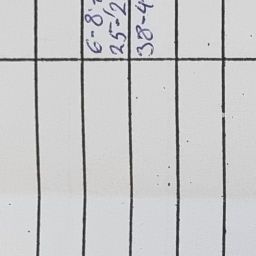 6-8
25-2
38-4